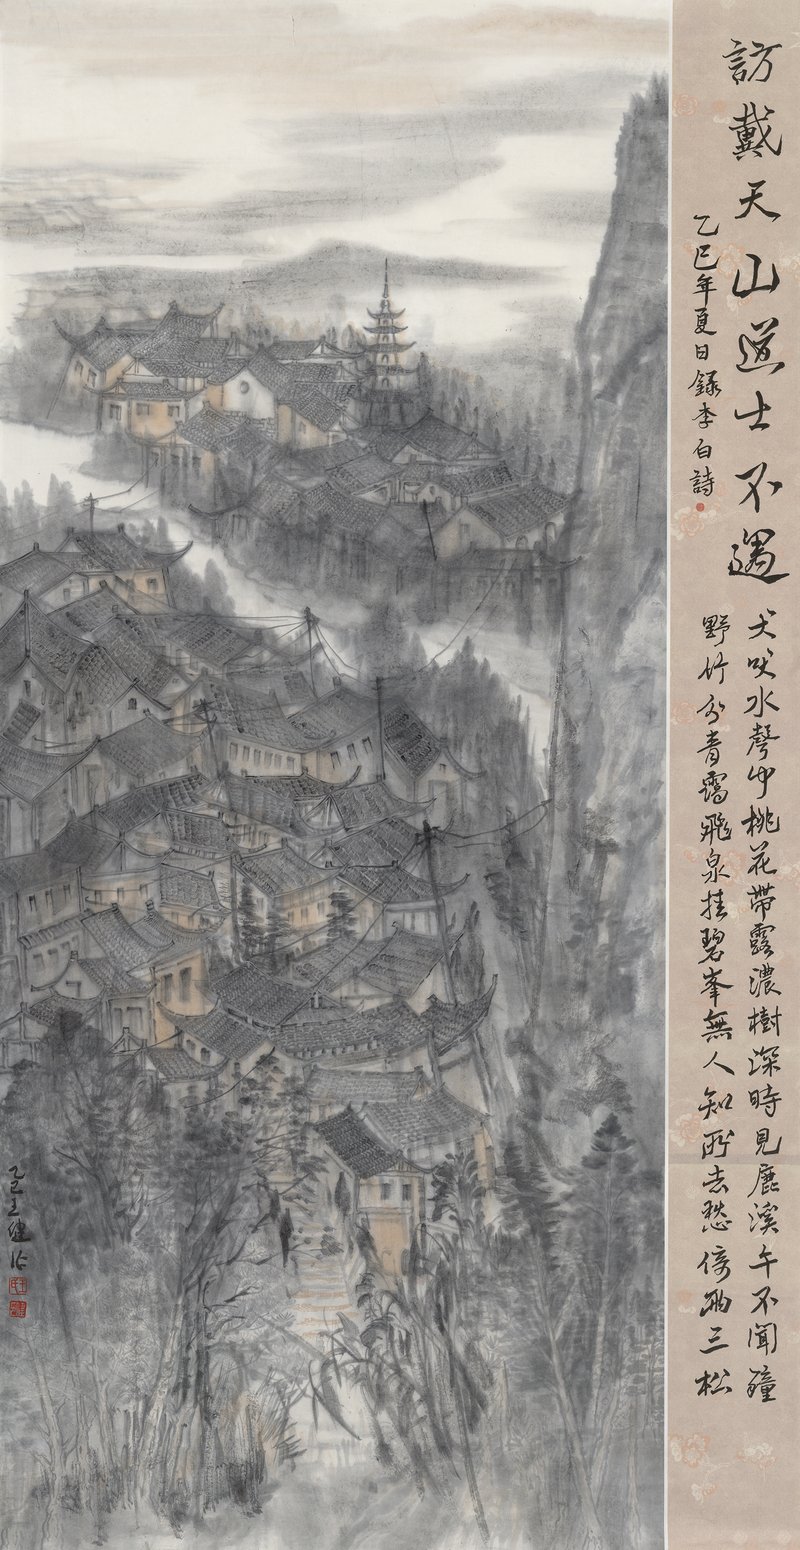 訪戴天山道士不遇
乙巳年夏日錄李白詩
犬吠水聲中桃花帶露濃樹深時見鹿溪午不聞鐘
野竹分青靄飛泉挂碧峯無人知所去愁倚兩三松
乙巳王健作